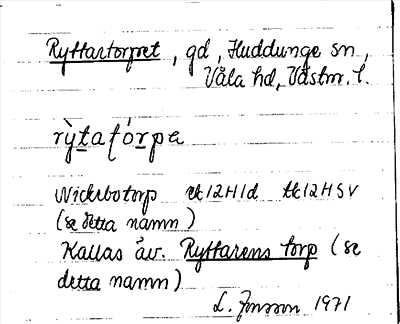 Ryttartorpet, gd, Huddunge sn,
Våla hd, Västm. l.
rỳtatórpe
Nickebotorp ek 12H1d tk 12HSV
(se detta namn)
Kallas äv. Ryttarens torp (se
detta namn)
L. Jonsson 1971